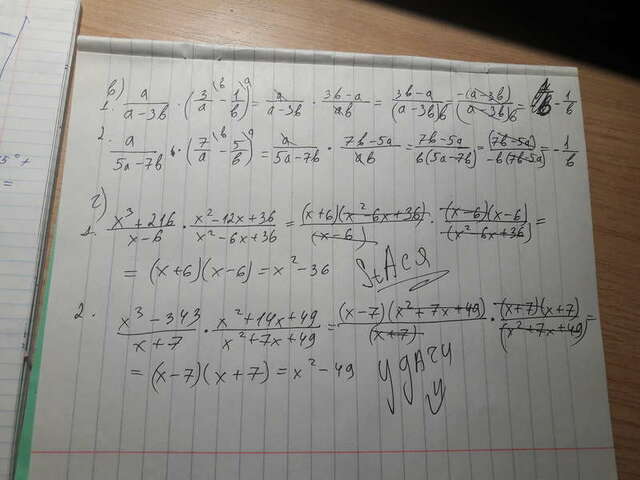 в)
1. a/(a-3b) · (3/a \b - 1/b \a) = a/(a-3b) · (3b-a)/(ab) = (3b-a)/((a-3b)b) = (-(a-3b))/((a-3b)b) = -1/b
2. a/(5a-7b) · (7/a \b - 5/b \a) = a/(5a-7b) · (7b-5a)/(ab) = (7b-5a)/(b(5a-7b)) = (7b-5a)/(-b(7b-5a)) = -1/b
г)
1. (x³+216)/(x-6) · (x²-12x+36)/(x²-6x+36) = ((x+6)(x²-6x+36))/(x-6) · ((x-6)(x-6))/(x²-6x+36) =
= (x+6)(x-6) = x²-36
StАСЯ
2. (x³-343)/(x+7) · (x²+14x+49)/(x²+7x+49) = ((x-7)(x²+7x+49))/(x+7) · ((x+7)(x+7))/(x²+7x+49) =
= (x-7)(x+7) = x²-49
УДАЧИ
У
5° +
=